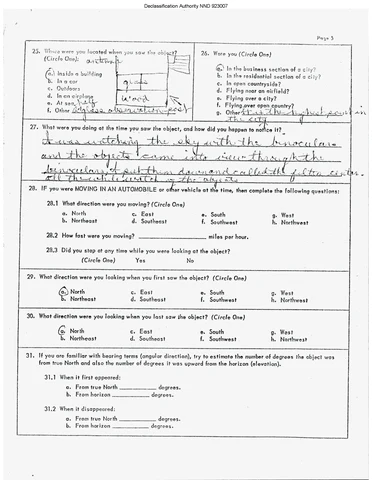 Declassification Authority NND 923007
Page 3
25. Where were you located when you saw the object?
(Circle One):
a. Inside a building
b. In a car
c. Outdoors
d. In an airplane
e. At sea
f. Other
glass
wood
26. Were you (Circle One)
a. In the business section of a city?
b. In the residential section of a city?
c. In open countryside?
d. Flying near an airfield?
e. Flying over a city?
f. Flying over open country?
g. Other
the city
27. What were you doing at the time you saw the object, and how did you happen to notice it?
I was watching the sky with the binoculars
and the objects came into view through the
binoculars. I set them down and called the filter center.
28. IF you were MOVING IN AN AUTOMOBILE or other vehicle at the time, then complete the following questions:
28.1 What direction were you moving? (Circle One)
a. North c. East e. South g. West
b. Northeast d. Southeast f. Southwest h. Northwest
28.2 How fast were you moving? miles per hour.
28.3 Did you stop at any time while you were looking at the object?
(Circle One) Yes No
29. What direction were you looking when you first saw the object? (Circle One)
a. North c. East e. South g. West
b. Northeast d. Southeast f. Southwest h. Northwest
30. What direction were you looking when you last saw the object? (Circle One)
a. North c. East e. South g. West
b. Northeast d. Southeast f. Southwest h. Northwest
31. If you are familiar with bearing terms (angular direction), try to estimate the number of degrees the object was
from true North and also the number of degrees it was upward from the horizon (elevation).
31.1 When it first appeared:
a. From true North degrees.
b. From horizon degrees.
31.2 When it disappeared:
a. From true North degrees.
b. From horizon degrees.